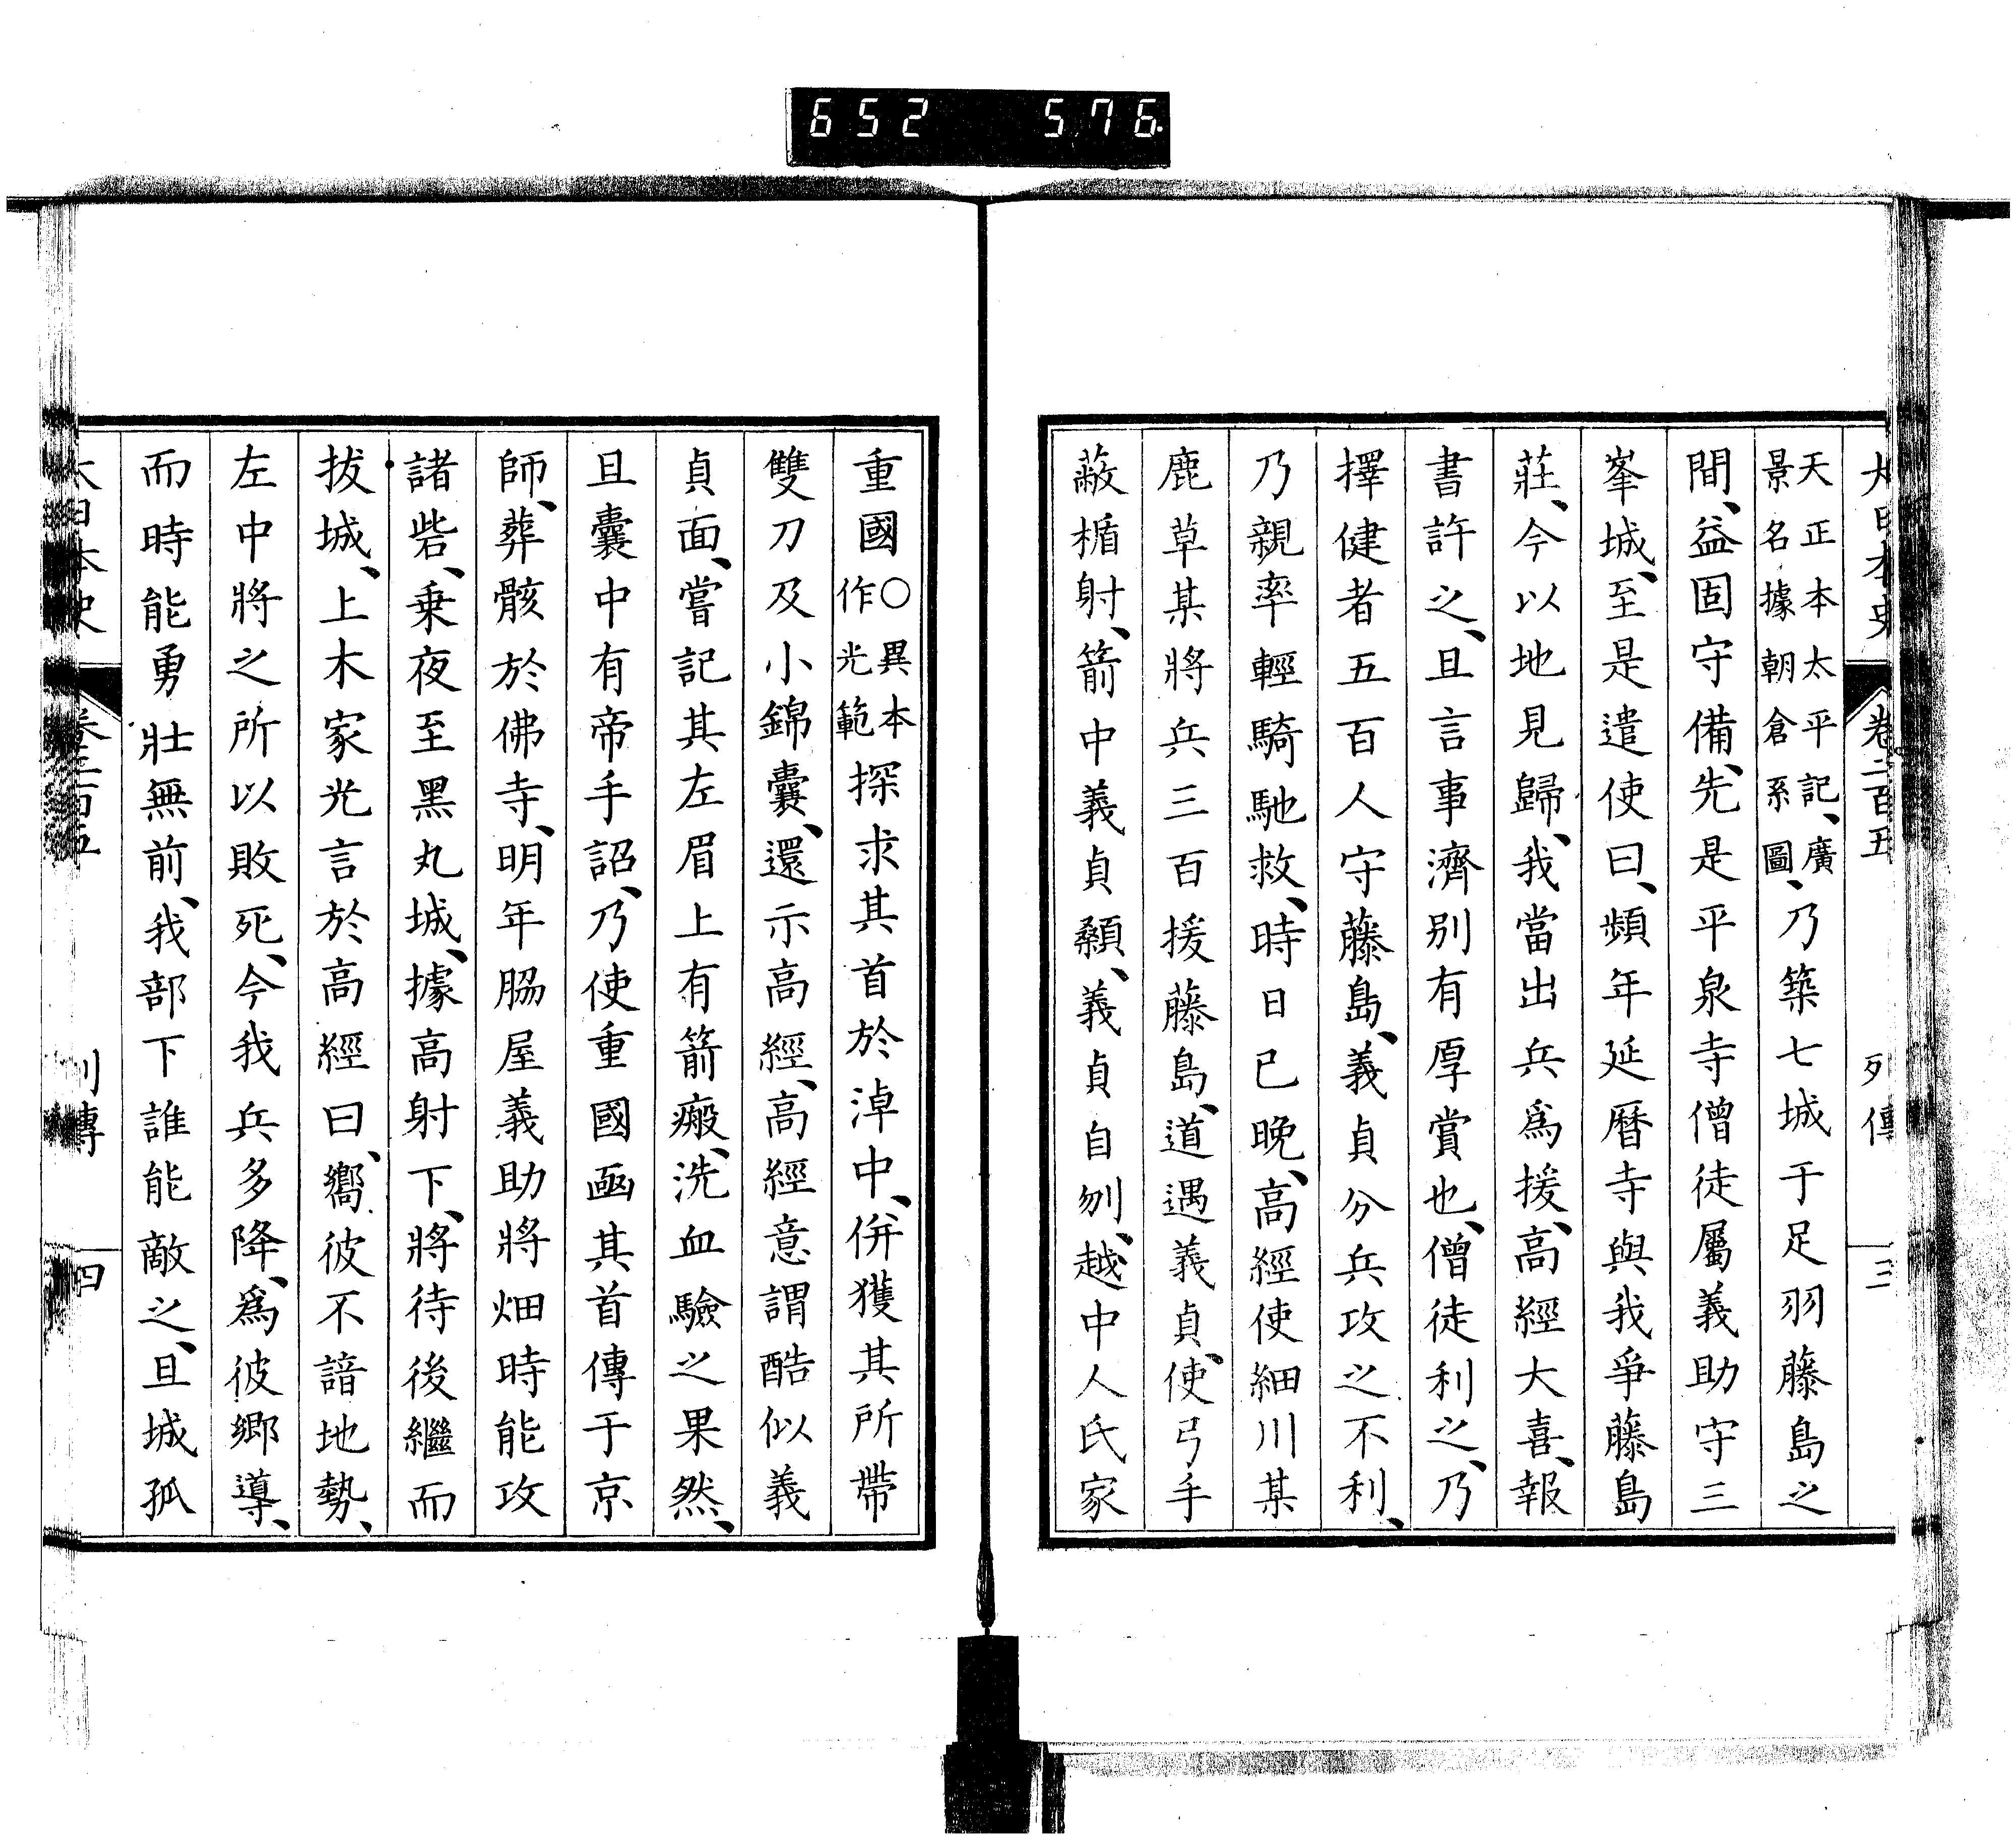 652 576
大日本史 卷二百五 列傳 三
天正本太平記、廣
景名據朝倉系圖、
乃築七城于足羽藤島之
間、益固守備、先是平泉寺僧徒屬義助守三
峯城、至是遣使曰、頻年延曆寺與我爭藤島
莊、今以地見歸、我當出兵爲援、高經大喜、報
書許之、且言事濟別有厚賞也、僧徒利之、乃
擇健者五百人守藤島、義貞分兵攻之不利、
乃親率輕騎馳救、時日已晚、高經使細川某
鹿草某將兵三百援藤島、道遇義貞、使弓手
蔽楯射、箭中義貞顙、義貞自刎、越中人氏家
重國
○異本
作光範
探求其首於淖中、併獲其所帶
雙刀及小錦囊、還示高經、高經意謂酷似義
貞面、嘗記其左眉上有箭瘢、洗血驗之果然、
且囊中有帝手詔、乃使重國函其首傳于京
師、葬骸於佛寺、明年脇屋義助將畑時能攻
諸砦、乗夜至黑丸城、據高射下、將待後繼而
拔城、上木家光言於高經曰、嚮彼不諳地勢、
左中將之所以敗死、今我兵多降、爲彼鄉導、
而時能勇壯無前、我部下誰能敵之、且城孤
大日本史 卷二百五 列傳 四